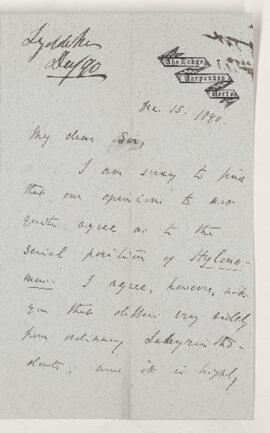 Lydekker
Dec/90
The Lodge
Harpenden
Herts
Dec. 15. 1890
My dear Sir,
I am sorry to find
that our opinions do not
quite agree as to the
serial position of
I agree, however, with
you that differs very widely
from ordinary Labyrintho-
donts; and it is highly